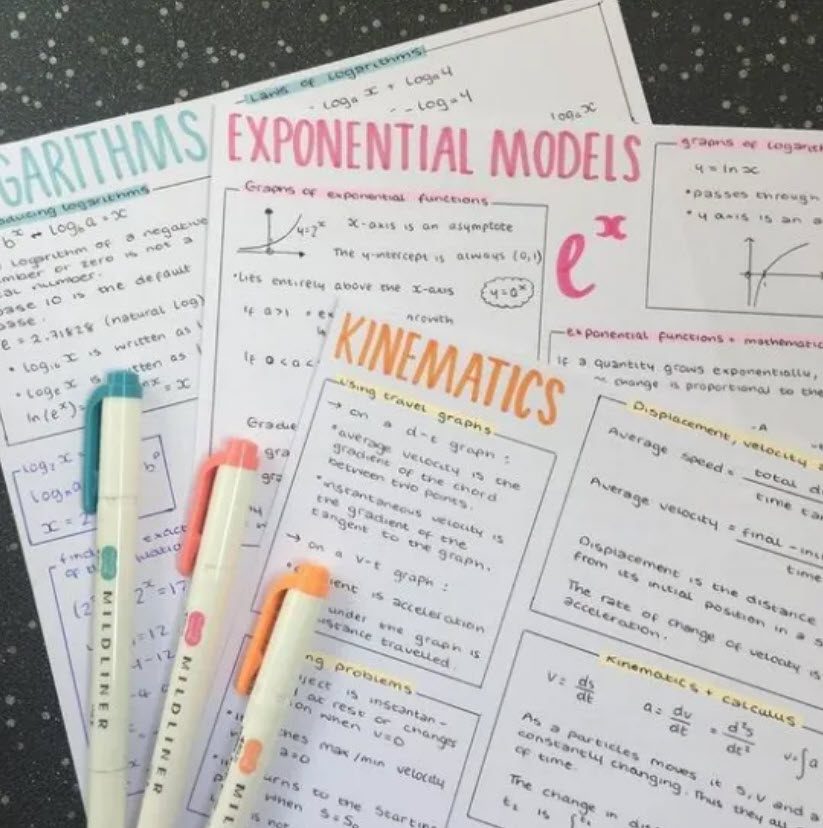 Laws of logarithms:
loga x + loga y
- loga y
loga x
GARITHMS
ducing logarithms
b^x ↔ logb a = x
logarithm of a negative
mber or zero is not a
al number.
base 10 is the default
base.
e = 2.71828 (natural log)
• log10 x is written as
• loge x is written as
ln(e^x) = = x
log2 x =
loga
x = 2
find exact
of
2^x = 17
EXPONENTIAL MODELS
Graphs of exponential functions
y=2^x
x-axis is an asymptote
The y-intercept is always (0,1)
• Lies entirely above the x-axis
y=a^x
If a>1
growth
If 0<a<
Gradie
gra
e^x
graphs of logarith
y = ln x
• passes through
• y axis is an a
exponential functions + mathematic
If a quantity grows exponentially,
change is proportional to the
KINEMATICS
Using travel graphs
→ on a d-t graph:
• average velocity is the
gradient of the chord
between two points.
• instantaneous velocity is
the gradient of the
tangent to the graph.
→ on a v-t graph:
ient is acceleration
under the graph is
distance travelled.
ng problems
ject is instantan-
at rest or changes
ion when v=0
hes max/min velocity
a=0
urns to the starting
when s=s0
is not
Displacement, velocity
Average speed = total d
time ta
Average velocity = final - ini
time
Displacement is the distance
from its initial position in a s
The rate of change of velocity is
acceleration.
Kinematics + calculus
v = ds/dt
a = dv/dt = d²s/dt²
v=∫a
As a particles moves it s, v and a
constantly changing. Thus they all
of time.
The change in dis
t2 is ∫
MILDLINER
MILDLINER
MIL